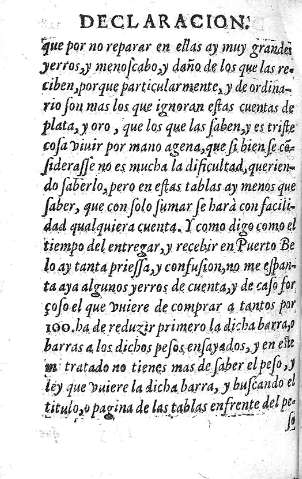 DECLARACION.
que por no reparar en ellas ay muy grandes
yerros, y menoscabo, y daño de los que las re-
ciben, porque particularmente, y de ordina-
rio son mas los que ignoran estas cuentas de
plata, y oro, que los que las saben, y es triste
cosa viuir por mano agena, que si bien se cõ-
siderasse no es mucha la dificultad, querien-
do saberlo, pero en estas tablas ay menos que
saber, que con solo sumar se harà con facili-
dad qualquiera cuenta. Y como digo como el
tiempo del entregar, y recebir en Puerto Be
lo ay tanta priessa, y confusion, no me espan-
ta aya algunos yerros de cuenta, y de caso for
çoso el que vuiere de comprar a tantos por
100. ha de reduzir primero la dicha barra, o
barras a los dichos pesos ensayados, y en este
tratado no tienes mas de saber el peso, y
ley que vuiere la dicha barra, y buscando el
titulo, o pagina de las tablas enfrente del pe-
so